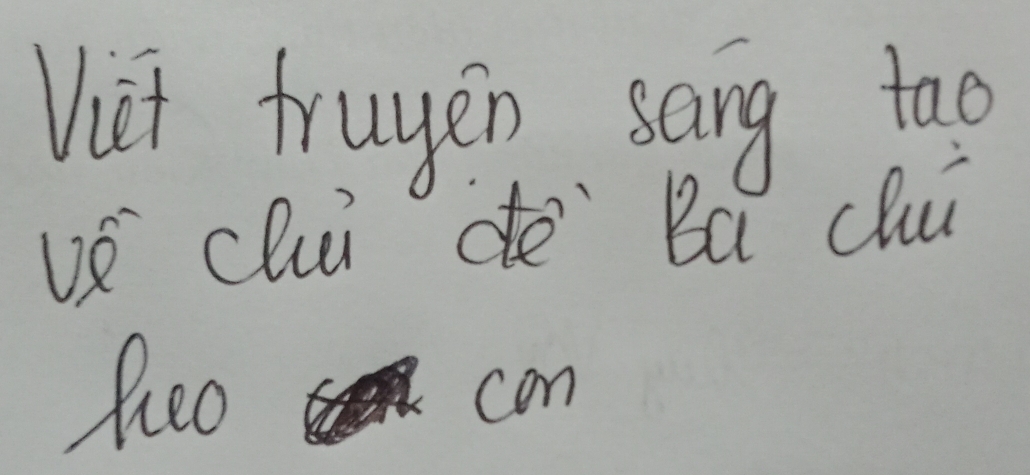 Viết truyện sáng tạo
về chủ đề Ba chú
heo con